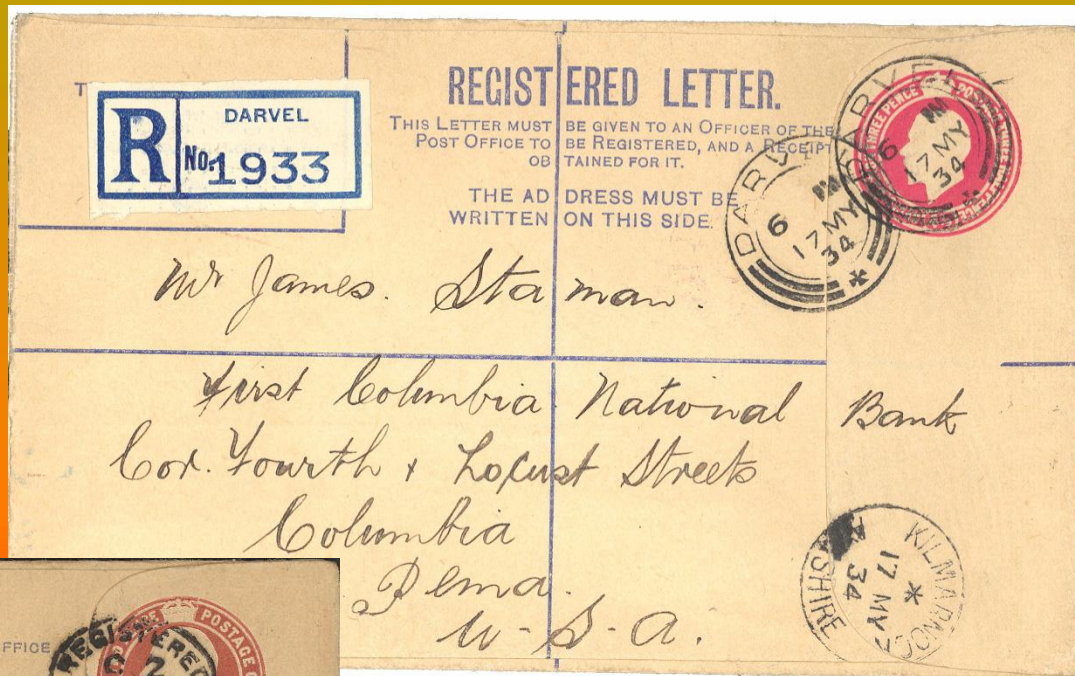 REGISTERED LETTER.
THIS LETTER MUST BE GIVEN TO AN OFFICER OF THE
POST OFFICE TO BE REGISTERED, AND A RECEIPT
OBTAINED FOR IT.
THE ADDRESS MUST BE
WRITTEN ON THIS SIDE.
T
R
DARVEL
No. 1933
THREE PENCE
POSTAGE
DARVEL
6 PM
17 MY
34
DARVEL
6 PM
17 MY
34
Mr James. Staman.
First Columbia National Bank
Cor. Fourth + Locust Streets
Columbia
Penna.
U-S-A.
KILMARNOCK
17 MY
34
AYRSHIRE
OFFICE
REGISTERED
POSTAGE